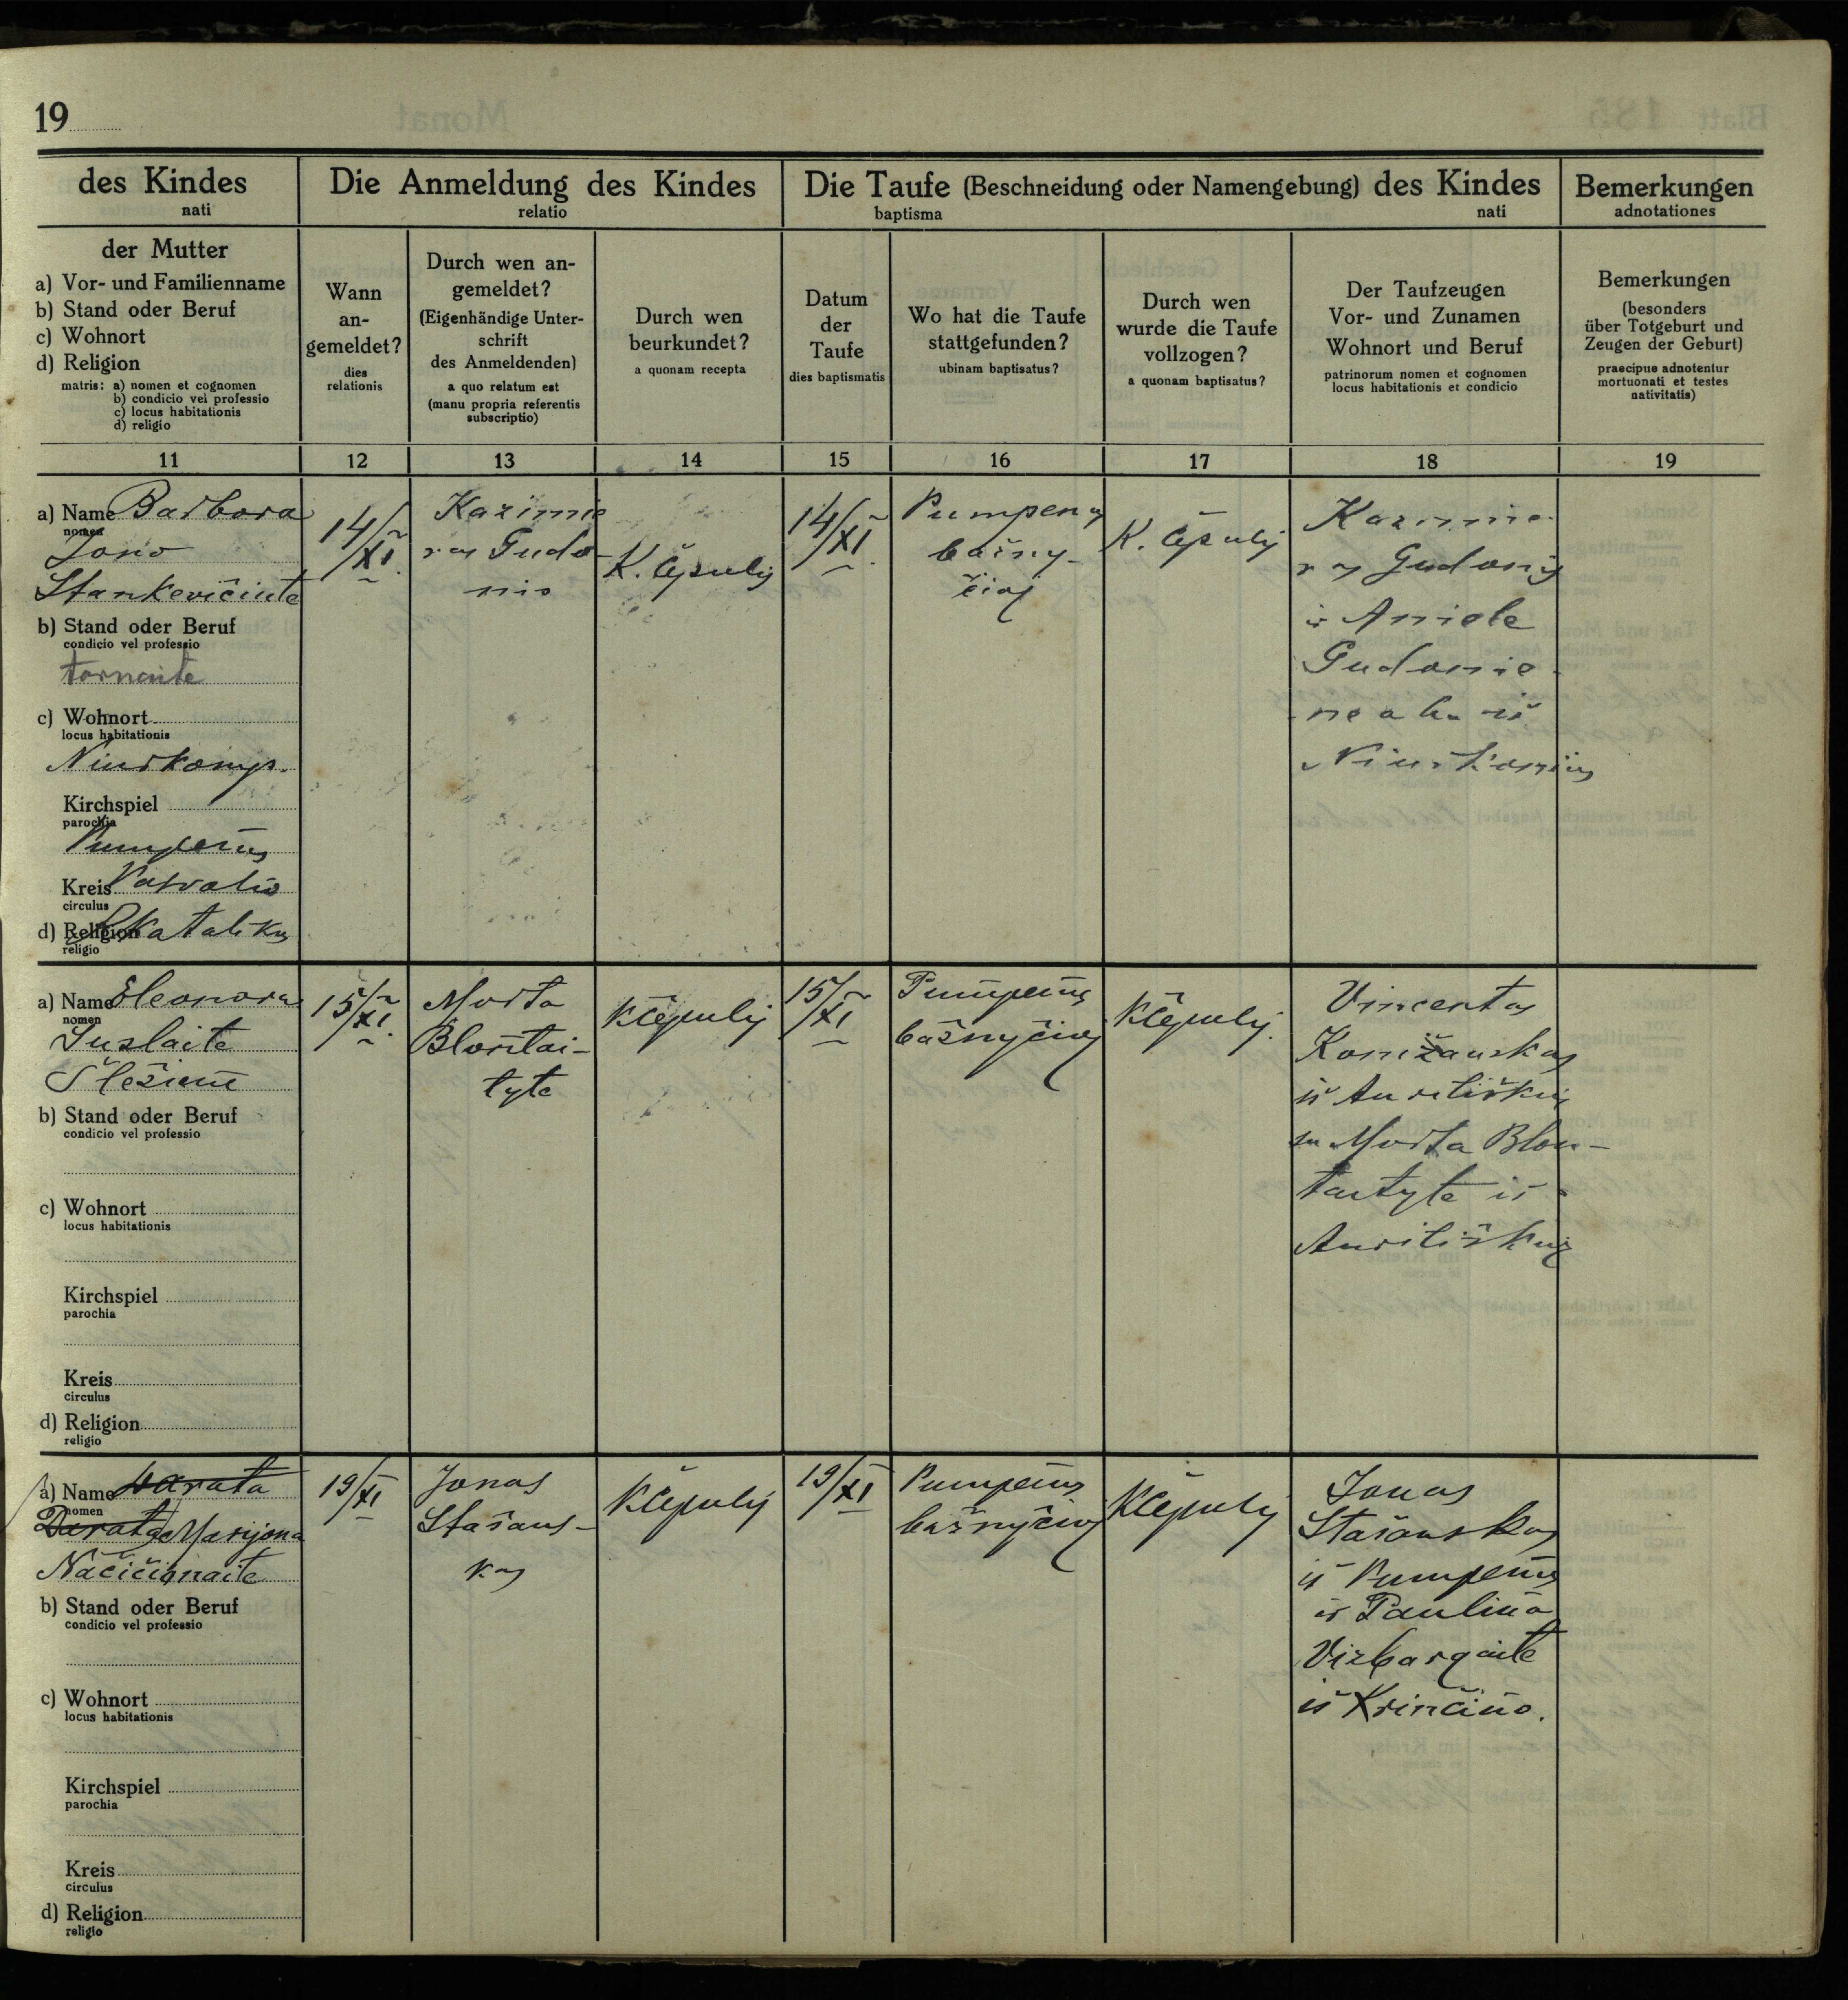 19
des Kindes
nati
Die Anmeldung des Kindes
relatio
Die Taufe (Beschneidung oder Namengebung) des Kindes
baptisma
nati
Bemerkungen
adnotationes
der Mutter
a) Vor- und Familienname
b) Stand oder Beruf
c) Wohnort
d) Religion
matris: a) nomen et cognomen
b) condicio vel professio
c) locus habitationis
d) religio
Wann
an-
gemeldet?
dies
relationis
Durch wen an-
gemeldet?
(Eigenhändige Unter-
schrift
des Anmeldenden)
a quo relatum est
(manu propria referentis
subscriptio)
Durch wen
beurkundet?
a quonam recepta
Datum
der
Taufe
dies baptismatis
Wo hat die Taufe
stattgefunden?
ubinam baptisatus?
Durch wen
wurde die Taufe
vollzogen?
a quonam baptisatus?
Der Taufzeugen
Vor- und Zunamen
Wohnort und Beruf
patrinorum nomen et cognomen
locus habitationis et condicio
Bemerkungen
(besonders
über Totgeburt und
Zeugen der Geburt)
praecipue adnotentur
mortuonati et testes
nativitatis)
11
12
13
14
15
16
17
18
19
a) Name Barbora
nomen
Jono
Stankevičiute
b) Stand oder Beruf
condicio vel professio
tarnaite
c) Wohnort
locus habitationis
Kirchspiel
parochia
Pumpėnų
Kreis
circulus
d) Religion Katalikų
religio
14/XI.
Kazimie
ras Gudo-
nis
K. Čepulis
14/XI.
Pumpėnų
bažny-
čioj
K. Čepulis
Kazimie-
ras Gudonis
ir Aniele
Gudonie-
ne abu iš
a) Name Eleonora
nomen
Suslaite
Šležiene
b) Stand oder Beruf
condicio vel professio
c) Wohnort
locus habitationis
Kirchspiel
parochia
Kreis
circulus
d) Religion
religio
15/XI.
Morta
Blontai-
tyte
KČepulis
15/XI
Pumpėnų
bažnyčioj
KČepulis.
Vincentas
iš Aureliškių
su Morta Blon-
taityte iš
Aureliškių
a) Name Darata
nomen
Darata Marijona
Načičionaite
b) Stand oder Beruf
condicio vel professio
c) Wohnort
locus habitationis
Kirchspiel
parochia
Kreis
circulus
d) Religion
religio
19/XI
Jonas
Stašans-
kas
KČepulis
19/XI
Pumpėnų
bažnyčioj
KČepulis
Jonas
Stašanskas
iš Pumpėnų
ir Paulina
Virbargaite
iš Krinčino.